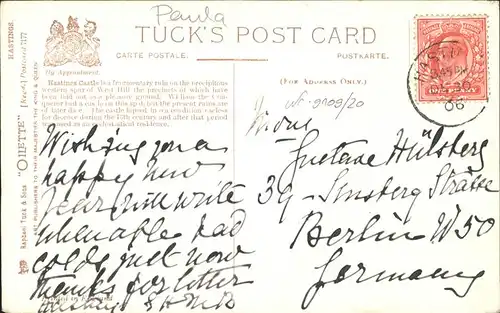 Paula
TUCK'S POST CARD
CARTE POSTALE.
POSTKARTE.
HASTINGS.
[Regd.] Postcard 7177
"OILETTE"
RAPHAEL TUCK & SONS
ART PUBLISHERS TO THEIR MAJESTIES THE KING & QUEEN
By Appointment.
Hastings Castle is a fragmentary ruin on the precipitous
western spur of West Hill the precincts of which have
been laid out as a pleasure ground. William the Conqueror
had a castle on this spot, but the present ruins are
of later date. The castle lapsed to a condition useless for
defence during the 13th century and after that period
remained as an ecclesiastical residence.
(For Address Only.)
ONE PENNY
06
Wishing you a
happy new
year will write
when able bad
colds just now
thanks for letter
Gustave Hülsberg
39 Ansberg Strasse
Berlin W 50
Germany